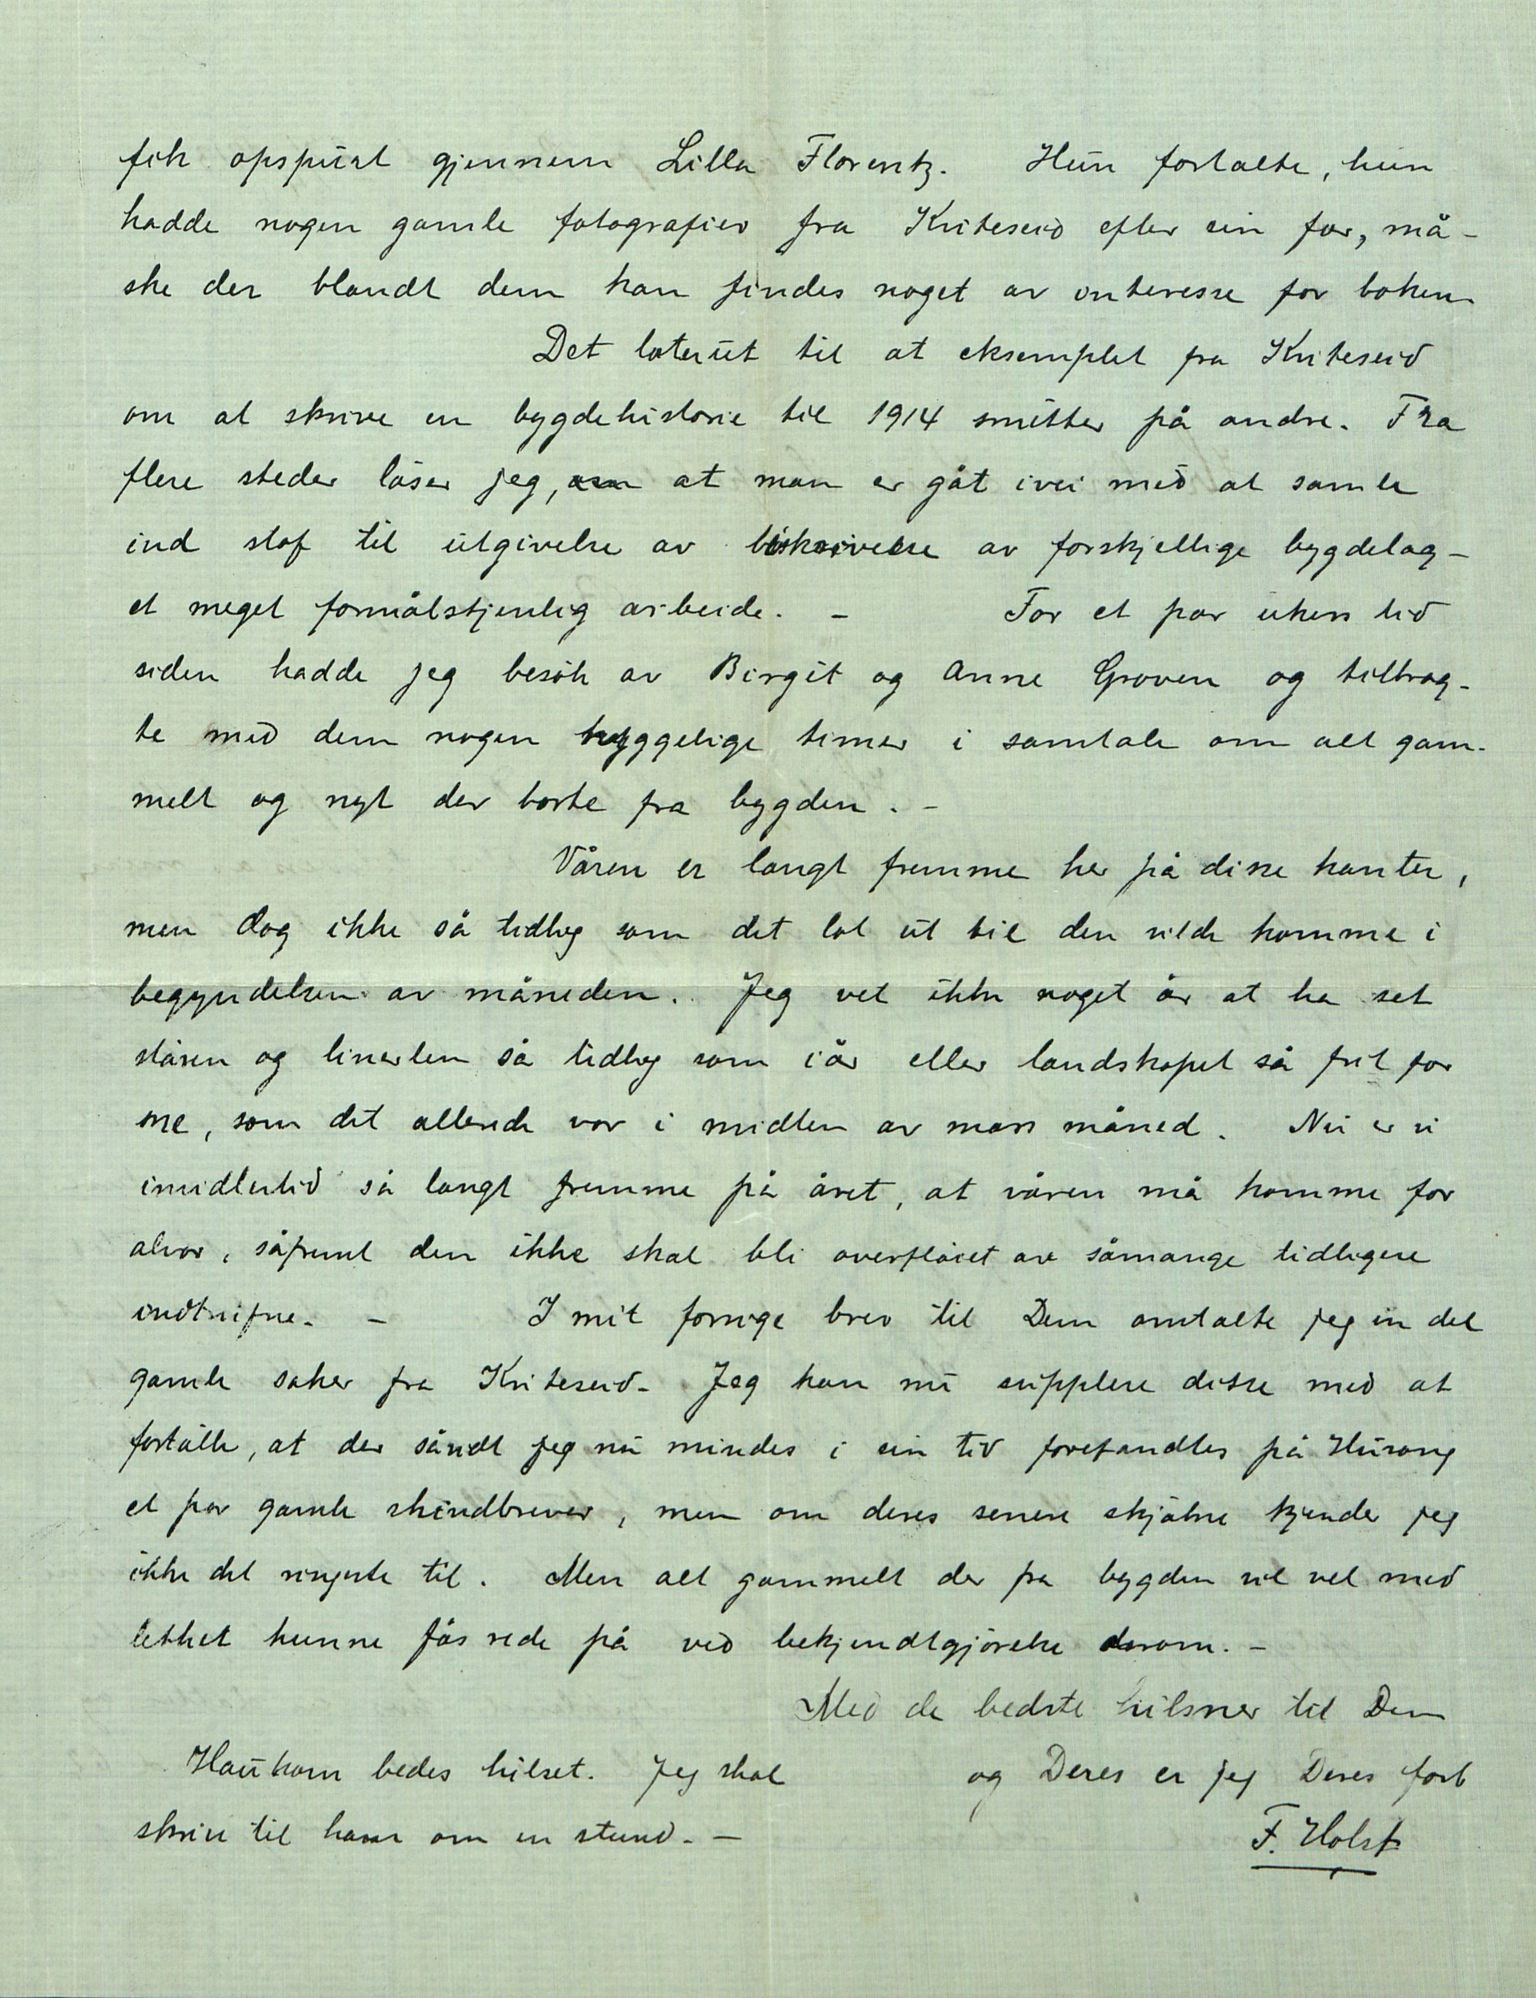 fik opspurt gjennem Lilla Florentz. Hun fortalte, hun
hadde nogen gamle fotografier fra Kviteseid efter sin far, må-
ske der blandt dem kan findes noget av interesse for boken.
Det later ut til at eksemplet fra Kviteseid
om at skrive en bygdehistorie til 1914 smitter på andre. Fra
flere steder läser jeg, at man er gåt ivei med at samle
ind stof til utgivelse av beskrivelse av forskjellige bygdelag –
et meget formålstjenlig arbeide. – For et par ukers tid
siden hadde jeg besök av Birgit og Anne Groven og tilbrag-
te med dem nogen hyggelige timer i samtale om alt gam-
melt og nyt der borte fra bygden. –
Våren er langt fremme her på disse kanter,
men dog ikke så tidlig som det lot ut til den vilde komme i
begyndelsen av måneden. Jeg vet ikke noget år at ha set
stären og linerlen så tidlig som iår eller landskapet så frit for
sne, som det allerede var i midten av mars måned. Nu er vi
imidlertid så langt fremme på året, at våren må komme for
alvor, såfremt den ikke skal bli overflöiet av såmange tidligere
indtrufne. – I mit forrige brev til Dem omtalte jeg en del
gamle saker fra Kviteseid. Jeg kan nu supplere disse med at
fortälle, at der såvidt jeg nu mindes i sin tid forefandtes på Husang
et par gamle skindbrever, men om deres senere skjäbne kjender jeg
ikke det ringeste til. Men alt gammelt der fra bygden vil vel med
letthet kunne fås rede på ved bekjendtgjörelse derom. –
Med de bedste hilsner til Dem
og Deres er jeg Deres forb
F. Holst
Haukom bedes hilset. Jeg skal
skrive til ham om en stund. –